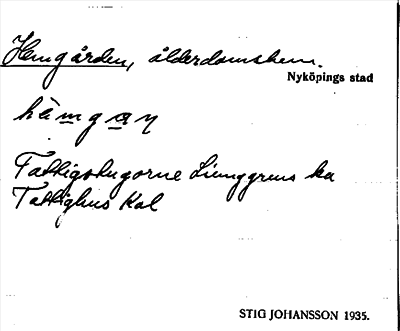 Hemgården, ålderdomshem.
Nyköpings stad
hèmgan
Fattigstugorne Liunggrens ka
Fattighus Kal
STIG JOHANSSON 1935.